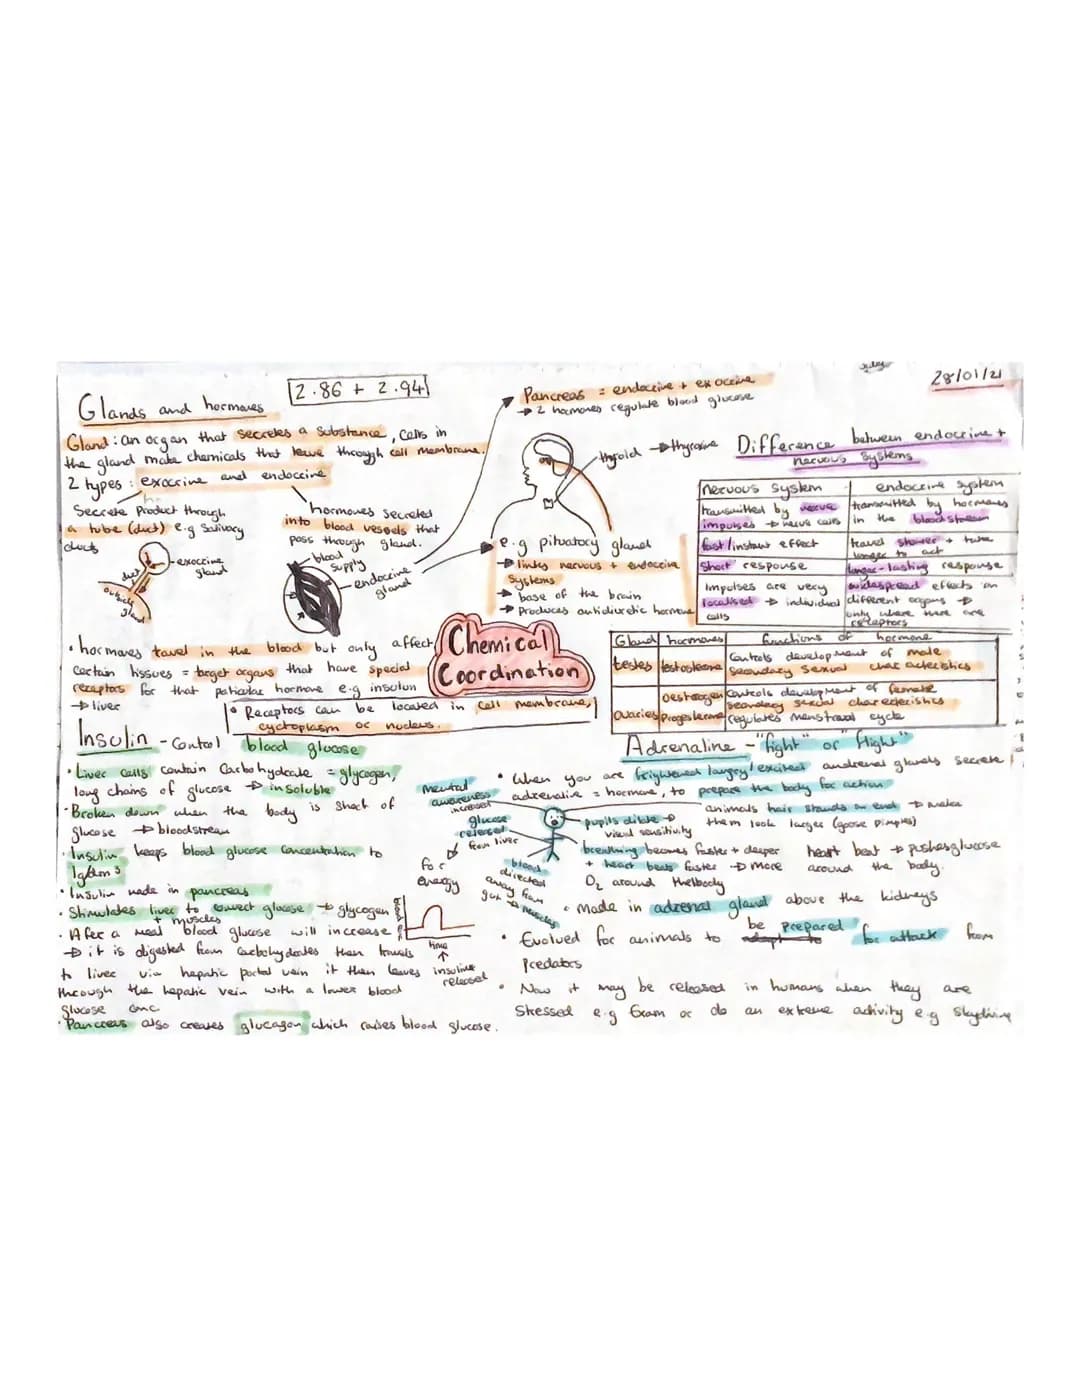 28/01/21
2.86 + 2.94
Glands and hormones
Gland : an organ that secretes a substance, cells in
the gland make chemicals that leave through cell membrane.
2 types : exocrine and endocrine
Secrete product through
a tube (duct) e.g Salivary
ducts
duct
exocrine
gland
outside
gland
hormones secreted
into blood vessels that
pass through gland.
blood
supply
endocrine
gland
Pancreas = endocrine + exocrine
→ 2 hormones regulate blood glucose
thyroid → thyroxine
e.g pituatory gland
→ links nervous + endocrine
Systems
→ base of the brain
→ Produces antidiuretic hormone
Difference between endocrine +
nervous systems
nervous system | endocrine system
transmitted by nerve | transmitted by hormones
impulses → nerve cells | in the bloodstream
fast/instant effect | travel slower + take
longer to act
Short response | longer-lasting response
impulses are very | widespread effects on
localised → individual | different organs →
cells | only where there are
receptors
Chemical
Coordination
• hormones travel in the blood but only affect
certain tissues = target organs that have special
receptors for that paticular hormone e.g insulin
→ liver
• Receptors can be located in cell membrane,
cyctoplasm or nucleus.
Gland | hormones | functions of hormone
testes | testosterone | Controls development of male
secondary sexual characteristics
Ovaries | oestrogen | Controls development of female
secondary sexual charecteristics
Progesterone | regulates menstraul cycle
Insulin - Control blood glucose
• Liver cells contain Carbohydrate = glycogen,
long chains of glucose → insoluble
• Broken down when the body is short of
glucose → bloodstream
• Insulin keeps blood glucose concentration to
1g/dm³
• Insulin made in pancreas
• Stimulates liver to convert glucose → glycogen
+ muscles
• After a meal blood glucose will increase
→ it is digested from carbohydrates then travels
to liver via hepatic portal vein it then leaves
through the hepatic vein with a lower blood
glucose conc
• Pancreas also creates glucagon which raises blood glucose.
time
insuline
released
Adrenaline - "fight" or "flight"
• When you are frightened /angry/excited andrenal glands secrete
adrenaline = hormone, to prepare the body for action
mental
awareness
increased
glucose
released
from liver
for
energy
blood
directed
away from
gut → muscles
animals hair stands on end → makes
them look larger (goose pimples)
pupils dilate →
visual sensitivity
breathing becomes faster + deeper
+ heart beats faster → more
O₂ around thebody
heart beat → pushes glucose
around the body.
• Made in adrenal gland above the kidneys
• Evolved for animals to be prepared for attack from
Predators
• Now it may be released in humans when they are
Stressed e.g Exam or do an extreme activity e.g Skydiving